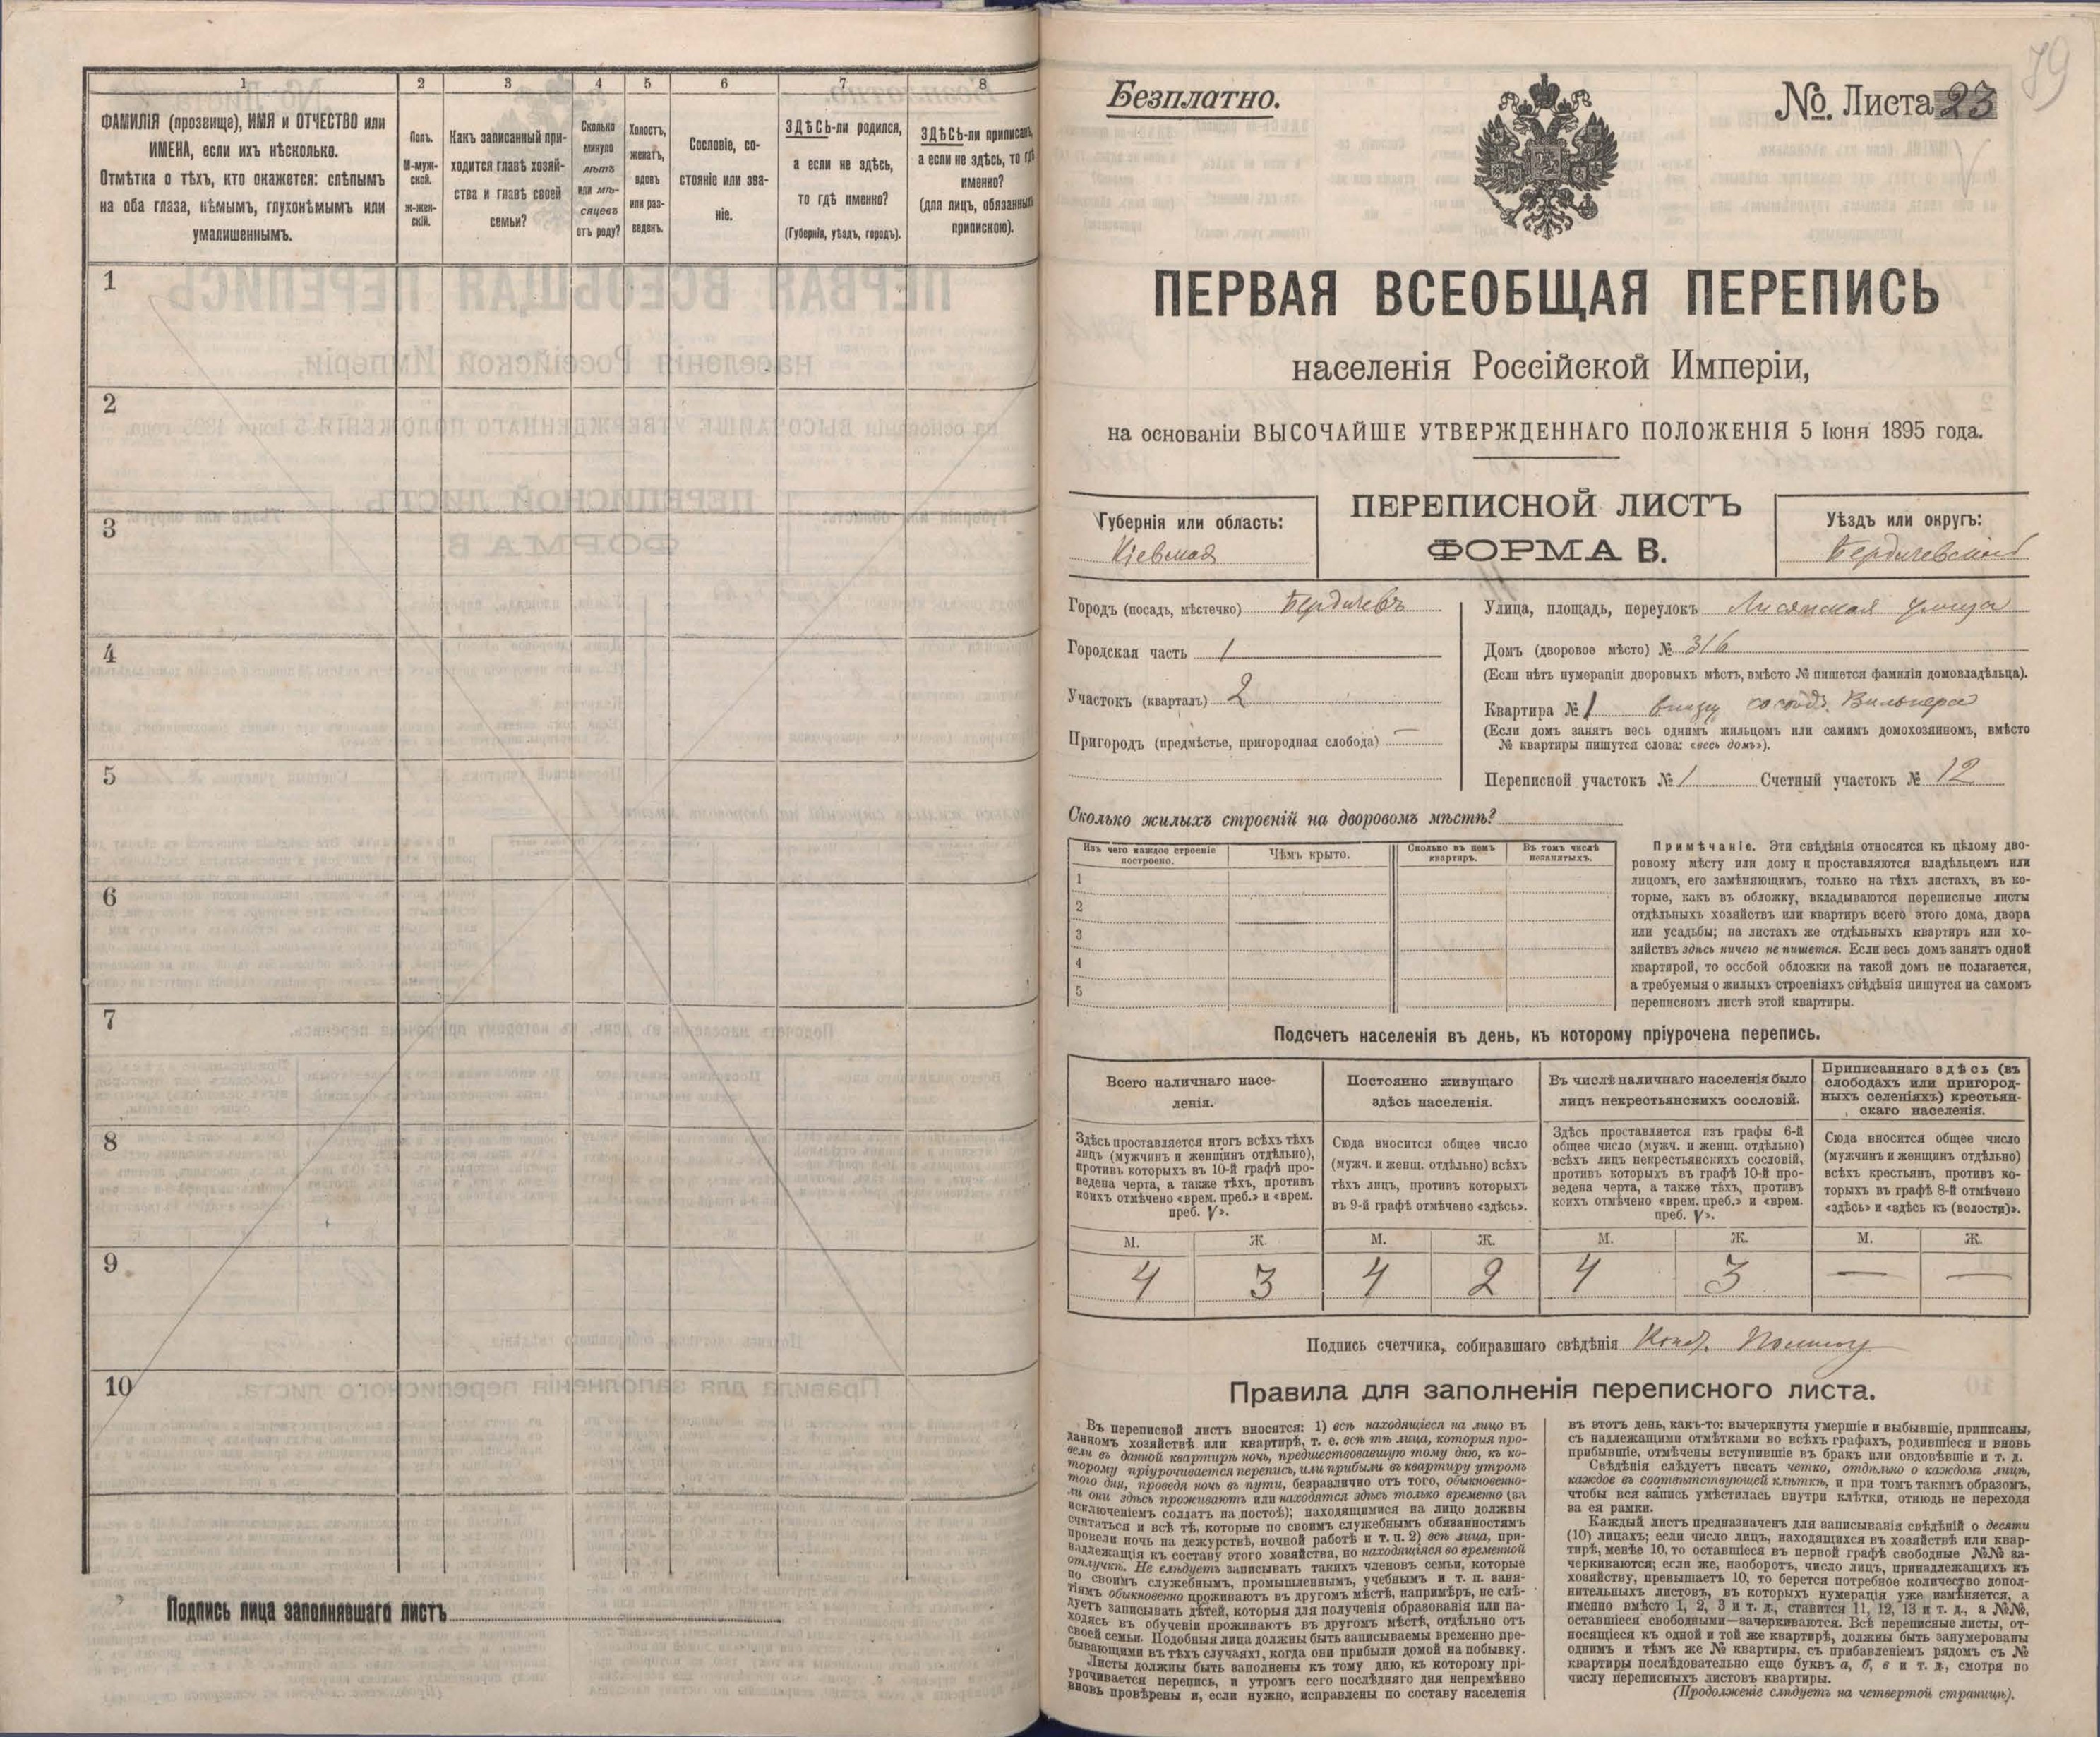 1
ФАМИЛІЯ (прозвище), ИМЯ и ОТЧЕСТВО или
ИМЕНА, если ихъ нѣсколько.
Отмѣтка о тѣхъ, кто окажется: слѣпымъ
на оба глаза, нѣмымъ, глухонѣмымъ или
умалишеннымъ.
2
Полъ.
М-муж-
ской.
ж-жен-
скій.
3
Какъ записанный при-
ходится главѣ хозяй-
ства и главѣ своей
семьи?
4
Сколько
минуло
лѣтъ
или мѣ-
сяцевъ
отъ роду?
5
Холостъ,
женатъ,
вдовъ
или раз-
веденъ.
6
Сословіе, со-
стояніе или зва-
ніе.
7
ЗДѢСЬ-ли родился,
а если не здѣсь,
то гдѣ именно?
(Губернія, уѣздъ, городъ).
8
ЗДѢСЬ-ли приписанъ,
а если не здѣсь, то гдѣ
именно?
(для лицъ, обязанныхъ
припискою).
1
2
3
4
5
6
7
8
9
10
Подпись лица заполнявшаго листъ
79
Безплатно.
№. Листа 23
ПЕРВАЯ ВСЕОБЩАЯ ПЕРЕПИСЬ
населенія Россійской Имперіи,
на основаніи ВЫСОЧАЙШЕ УТВЕРЖДЕННАГО ПОЛОЖЕНІЯ 5 Іюня 1895 года.
Губернія или область:
Кіевская
ПЕРЕПИСНОЙ ЛИСТЪ
ФОРМА В.
Уѣздъ или округъ:
Бердичевскій
Городъ (посадъ, мѣстечко) Бердичевъ
Городская часть 1
Участокъ (кварталъ) 2
Пригородъ (предмѣстье, пригородная слобода) —
Улица, площадь, переулокъ Лисянская улица
Домъ (дворовое мѣсто) № 316
(Если нѣтъ нумераціи дворовыхъ мѣстъ, вмѣсто № пишется фамилія домовладѣльца).
Квартира № 1 внизу
(Если домъ занятъ весь однимъ жильцомъ или самимъ домохозяиномъ, вмѣсто
№ квартиры пишутся слова: «весь домъ»).
Переписной участокъ № 1 Счетный участокъ № 12
Сколько жилыхъ строеній на дворовомъ мѣстѣ?
Изъ чего каждое строеніе
построено.
Чѣмъ крыто.
Сколько въ немъ
квартиръ.
Въ томъ числѣ
незанятыхъ.
1
2
3
4
5
Примѣчаніе. Эти свѣдѣнія относятся къ цѣлому дво-
ровому мѣсту или дому и проставляются владѣльцемъ или
лицомъ, его замѣняющимъ, только на тѣхъ листахъ, въ ко-
торые, какъ въ обложку, вкладываются переписные листы
отдѣльныхъ хозяйствъ или квартиръ всего этого дома, двора
или усадьбы; на листахъ же отдѣльныхъ квартиръ или хо-
зяйствъ здѣсь ничего не пишется. Если весь домъ занятъ одной
квартирой, то особой обложки на такой домъ не полагается,
а требуемыя о жилыхъ строеніяхъ свѣдѣнія пишутся на самомъ
переписномъ листѣ этой квартиры.
Подсчетъ населенія въ день, къ которому пріурочена перепись.
Всего наличнаго насе-
ленія.
Здѣсь проставляется итогъ всѣхъ тѣхъ
лицъ (мужчинъ и женщинъ отдѣльно),
противъ которыхъ въ 10-й графѣ про-
ведена черта, а также тѣхъ, противъ
коихъ отмѣчено «врем. преб.» и «врем.
преб. V».
Постоянно живущаго
здѣсь населенія.
Сюда вносится общее число
(мужч. и женщ. отдѣльно) всѣхъ
тѣхъ лицъ, противъ которыхъ
въ 9-й графѣ отмѣчено «здѣсь».
Въ числѣ наличнаго населенія было
лицъ некрестьянскихъ сословій.
Здѣсь проставляется изъ графы 6-й
общее число (мужч. и женщ. отдѣльно)
всѣхъ лицъ некрестьянскихъ сословій,
противъ которыхъ въ графѣ 10-й про-
ведена черта, а также тѣхъ, противъ
коихъ отмѣчено «врем. преб.» и «врем.
преб. V».
Приписаннаго здѣсь (въ
слободахъ или пригород-
ныхъ селеніяхъ) крестьян-
скаго населенія.
Сюда вносится общее число
(мужчинъ и женщинъ отдѣльно)
всѣхъ крестьянъ, противъ ко-
торыхъ въ графѣ 8-й отмѣчено
«здѣсь» и «здѣсь къ (волости)».
М. Ж. М. Ж. М. Ж. М. Ж.
4 3 4 2 4 3 — —
Подпись счетчика, собиравшаго свѣдѣнія
Правила для заполненія переписного листа.
Въ переписной листъ вносятся: 1) всѣ находящіеся на лицо въ
данномъ хозяйствѣ или квартирѣ, т. е. всѣ тѣ лица, которыя про-
вели въ данной квартирѣ ночь, предшествовавшую тому дню, къ ко-
торому пріурочивается перепись, или прибыли въ квартиру утромъ
того дня, проведя ночь въ пути, безразлично отъ того, обыкновенно-
ли они здѣсь проживаютъ или находятся здѣсь только временно (за
исключеніемъ солдатъ на постоѣ); находящимися на лицо должны
считаться и всѣ тѣ, которые по своимъ служебнымъ обязанностямъ
провели ночь на дежурствѣ, ночной работѣ и т. п. 2) всѣ лица, при-
надлежащія къ составу этого хозяйства, но находящіяся во временной
отлучкѣ. Не слѣдуетъ записывать такихъ членовъ семьи, которые
по своимъ служебнымъ, промышленнымъ, учебнымъ и т. п. заня-
тіямъ обыкновенно проживаютъ въ другомъ мѣстѣ, напримѣръ, не слѣ-
дуетъ записывать дѣтей, которыя для полученія образованія или на-
ходясь въ обученіи проживаютъ въ другомъ мѣстѣ, отдѣльно отъ
своей семьи. Подобныя лица должны быть записываемы временно пре-
бывающими въ тѣхъ случаяхъ, когда они прибыли домой на побывку.
Листы должны быть заполнены къ тому дню, къ которому прі-
урочивается перепись, и утромъ сего послѣдняго дня непремѣнно
вновь провѣрены и, если нужно, исправлены по составу населенія
въ этотъ день, какъ-то: вычеркнуты умершіе и выбывшіе, приписаны,
съ надлежащими отмѣтками во всѣхъ графахъ, родившіеся и вновь
прибывшіе, отмѣчены вступившіе въ бракъ или овдовѣвшіе и т. д.
Свѣдѣнія слѣдуетъ писать четко, отдѣльно о каждомъ лицѣ,
каждое въ соотвѣтствующей клѣткѣ, и при томъ такимъ образомъ,
чтобы вся запись умѣстилась внутри клѣтки, отнюдь не переходя
за ея рамки.
Каждый листъ предназначенъ для записыванія свѣдѣній о десяти
(10) лицахъ; если число лицъ, находящихся въ хозяйствѣ или квар-
тирѣ, менѣе 10, то оставшіеся въ первой графѣ свободные №№ за-
черкиваются; если же, наоборотъ, число лицъ, принадлежащихъ къ
хозяйству, превышаетъ 10, то берется потребное количество допол-
нительныхъ листовъ, въ которыхъ нумерація уже измѣняется, а
именно вмѣсто 1, 2, 3 и т. д., ставится 11, 12, 13 и т. д., а №№,
оставшіеся свободными—зачеркиваются. Всѣ переписные листы, от-
носящіеся къ одной и той же квартирѣ, должны быть занумерованы
однимъ и тѣмъ же № квартиры, съ прибавленіемъ рядомъ съ №
квартиры послѣдовательно еще буквъ а, б, в и т. д., смотря по
числу переписныхъ листовъ квартиры.
(Продолженіе слѣдуетъ на четвертой страницѣ).